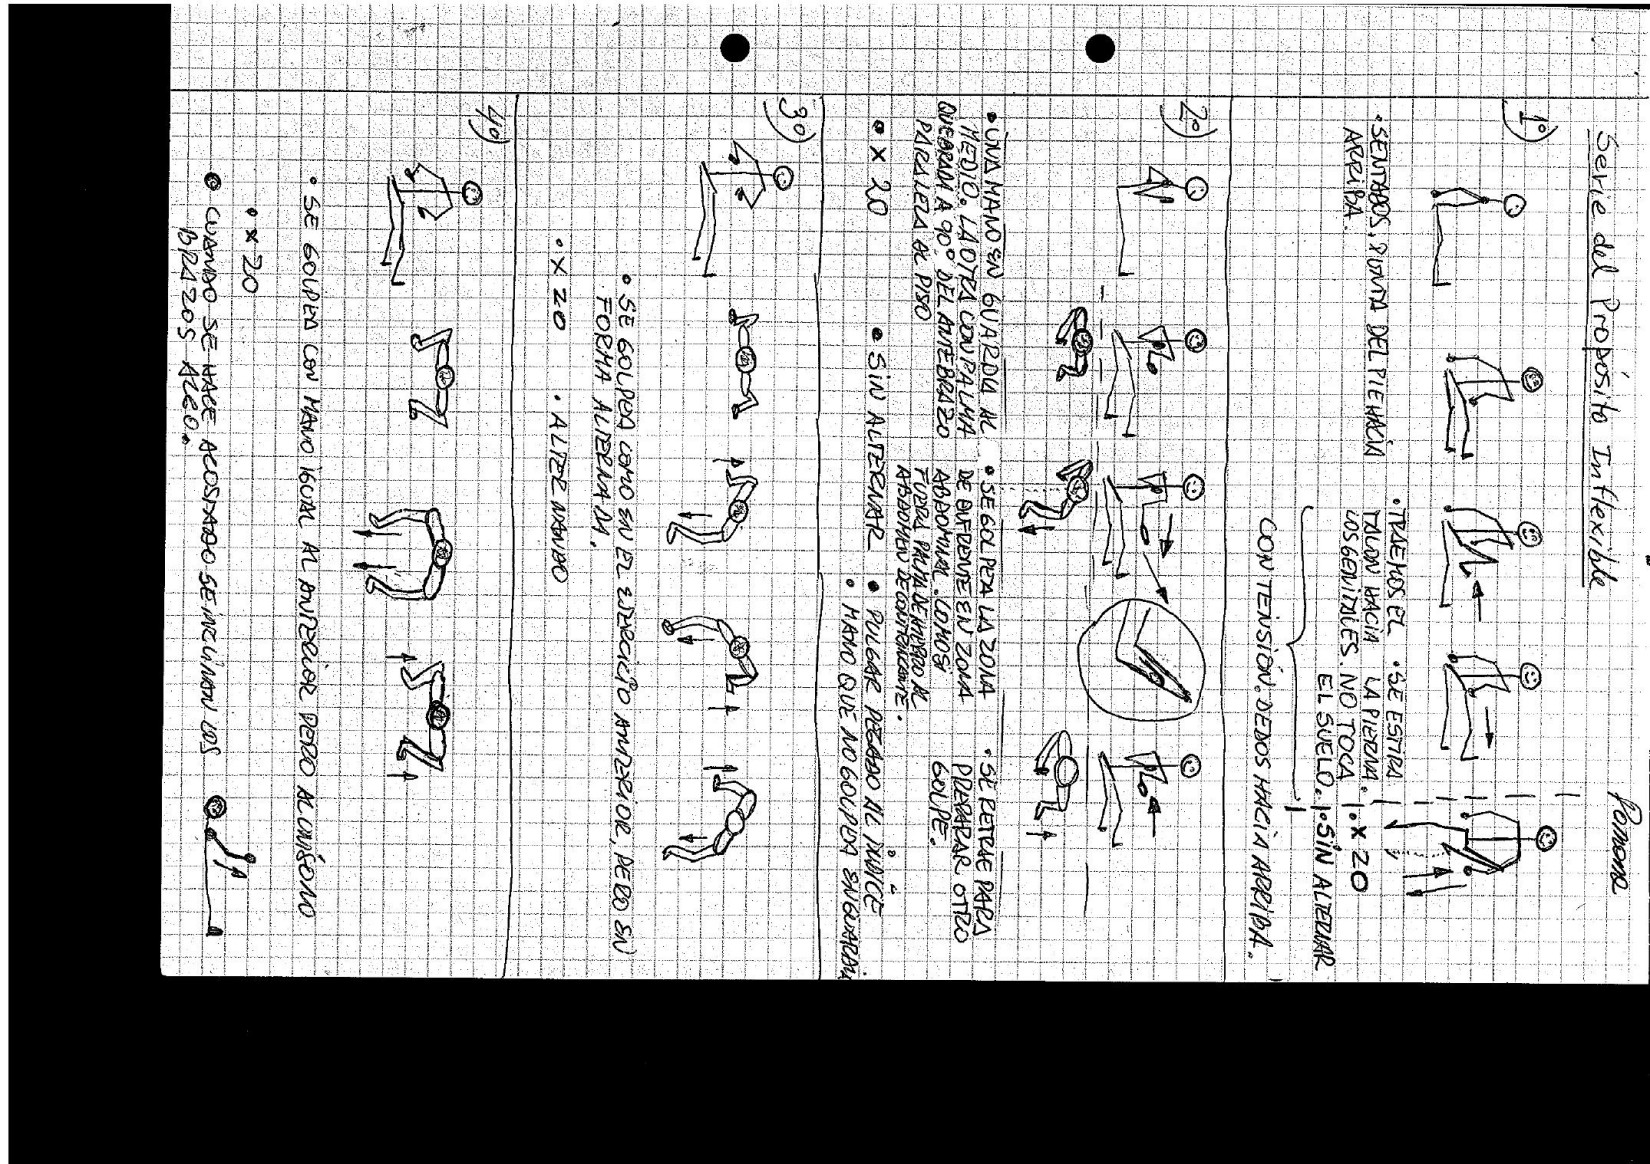 Serie del Propósito Inflexible
Pomona
1º)
• SENTADOS, PUNTA DEL PIE HACIA
ARRIBA.
• TRAEMOS EL
TALON HACIA
LOS GENITALES. NO TOCA
EL SUELO.
• SE ESTIRA
LA PIERNA.
• X 20
• SIN ALTERNAR
CON TENSIÓN. DEDOS HACIA ARRIBA.
2º)
• UNA MANO EN GUARDIA AL
MEDIO. LA OTRA CON PALMA
QUEBRADA A 90º DEL ANTEBRAZO
PARALELA AL PISO
• SE GOLPEA LA ZONA
DE ENFRENTE EN ZONA
ABDOMINAL. COMO SI
FUERA PALMA DE HIERRO AL
ABDOMEN DE CONTRINCANTE.
• SE RETRAE PARA
PREPARAR OTRO
GOLPE.
• X 20
• SIN ALTERNAR
• PULGAR PEGADO AL INDICE
• MANO QUE NO GOLPEA EN GUARDIA.
3º)
• SE GOLPEA COMO EN EL EJERCICIO ANTERIOR, PERO EN
FORMA ALTERNADA.
• X 20
• ALTERNANDO
4º)
• SE GOLPEA CON MANO IGUAL AL ANTERIOR PERO AL UNÍSONO
• X 20
• CUANDO SE HACE ACOSTADO SE INCLINAN LOS
BRAZOS ALGO.